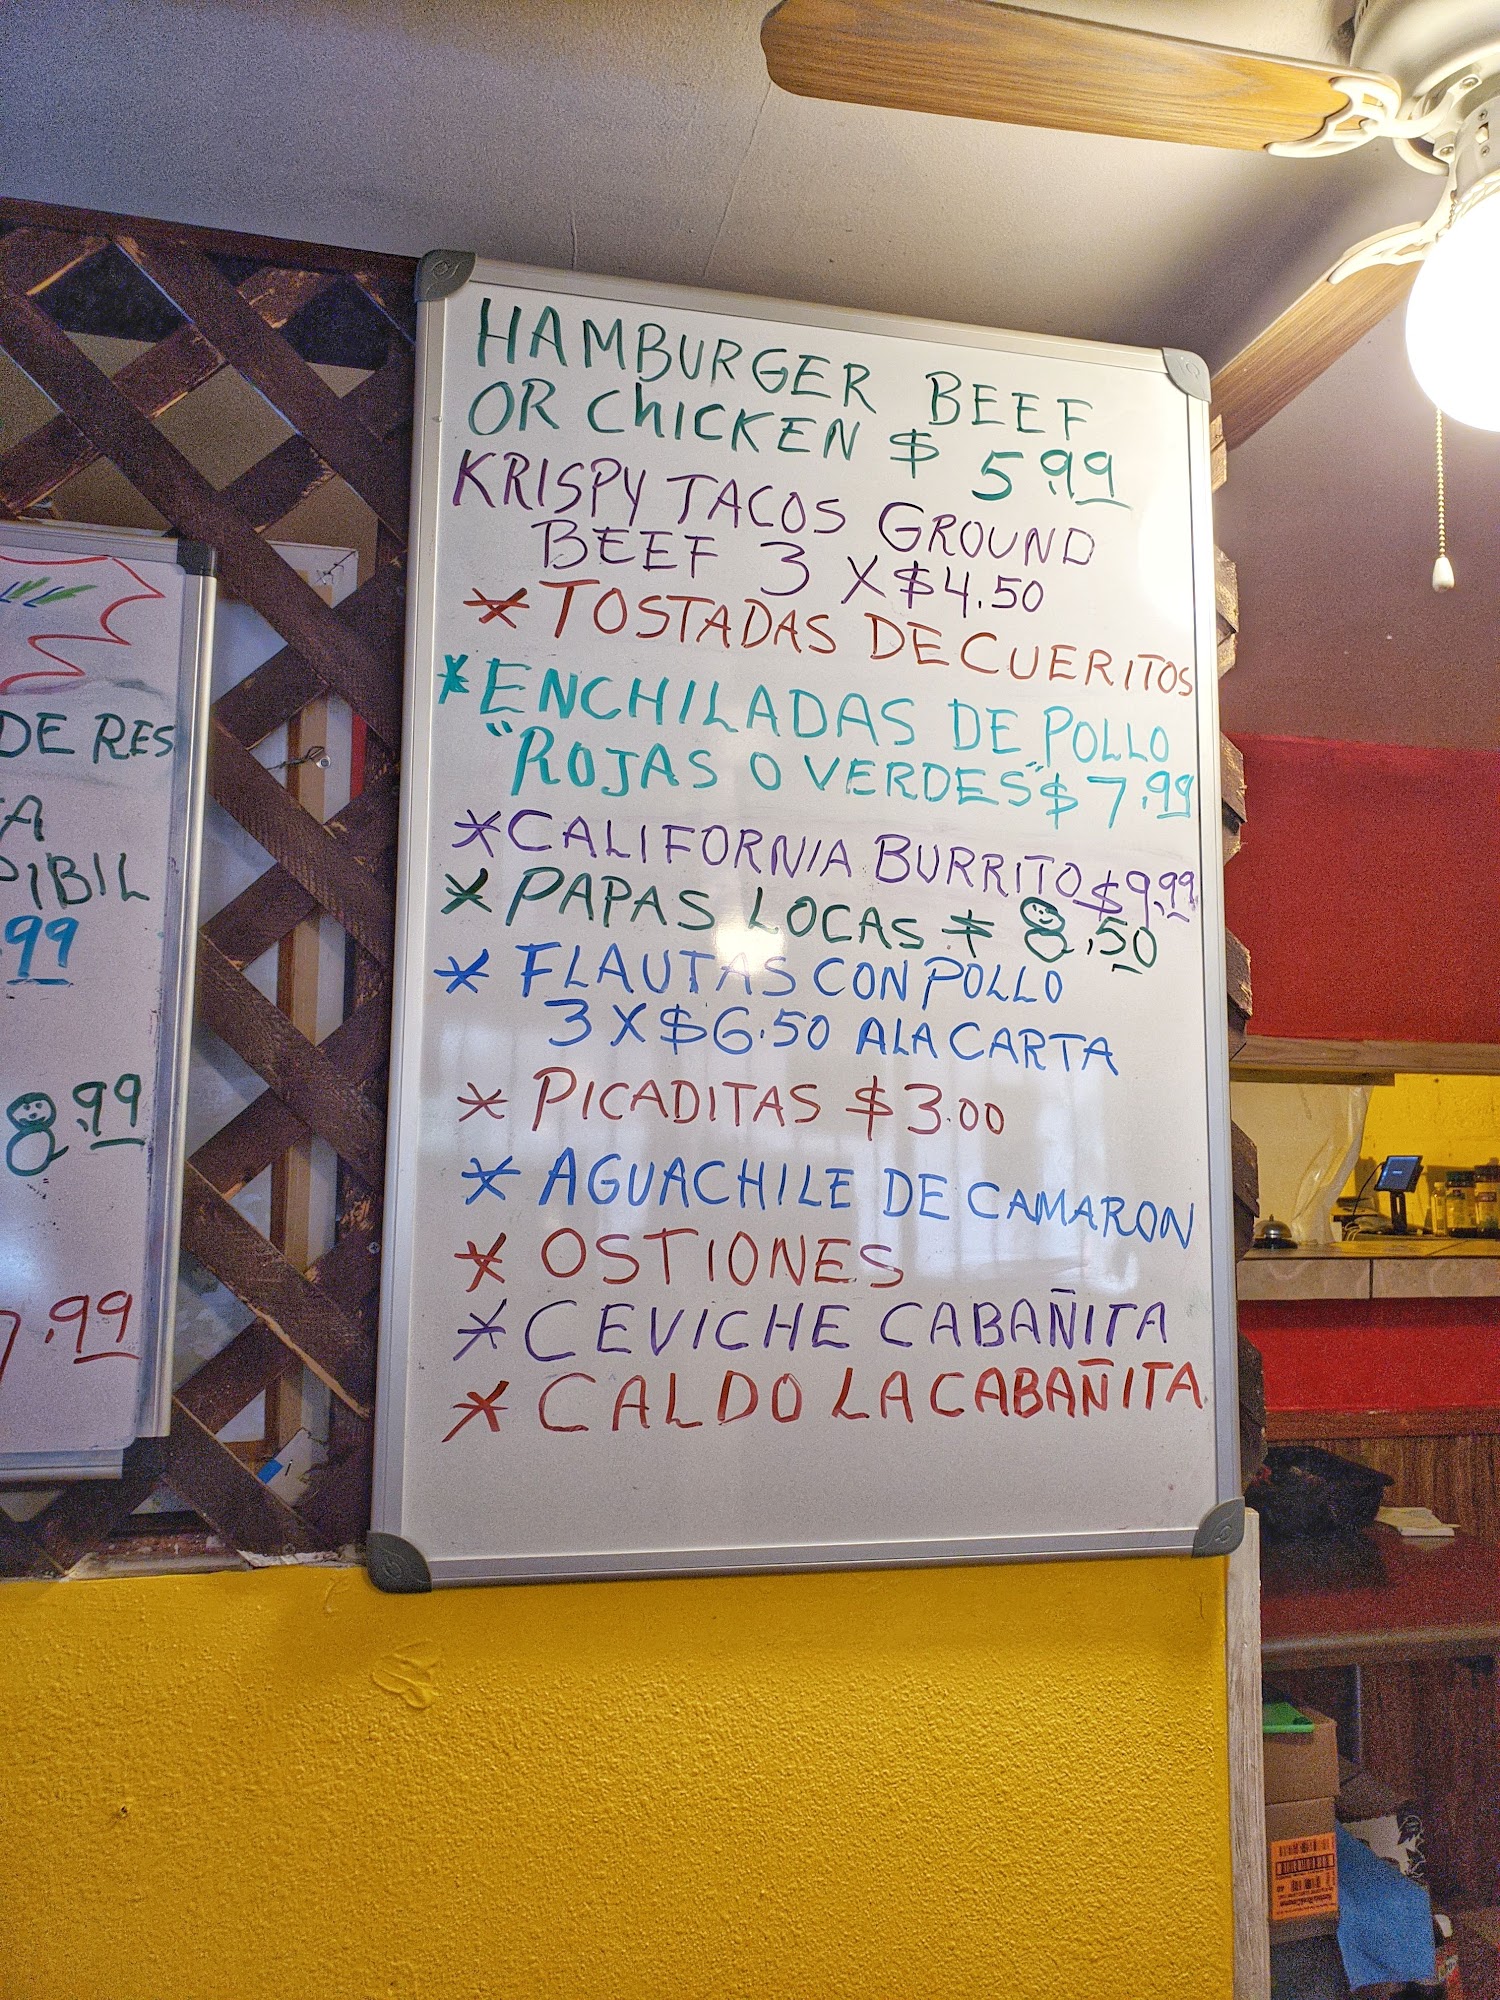 HAMBURGER BEEF
OR ChICKEN $ 5.99
KRISPY TACOS GROUND
BEEF 3 X $4.50
* TOSTADAS DE CUERITOS
* ENCHILADAS DE POLLO
"ROJAS O VERDES" $ 7.99
* CALIFORNIA BURRITO $9.99
* PAPAS LOCAS $ 8.50
* FLAUTAS CON POLLO
3 X $6.50 ALA CARTA
* PICADITAS $3.00
* AGUACHILE DE CAMARON
* OSTIONES
* CEVICHE CABAÑITA
* CALDO LA CABAÑITA
DE RES
A
PIBIL
.99
8.99
7.99